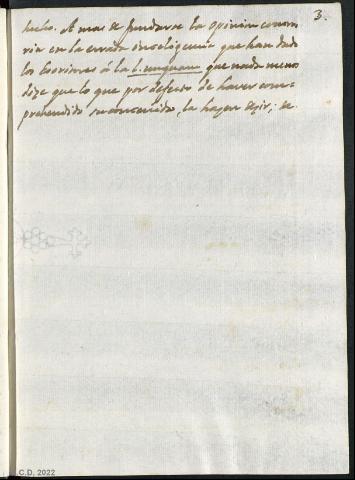 3.
hecho. A mas de fundarse la opinion contra
ria en la errada inteligencia que han dado
los Escritores á la l. unquam que nada menos
dize que lo que por defecto de haver com-
prehendido su contenido, la hazen dezir; se
C.D. 2022